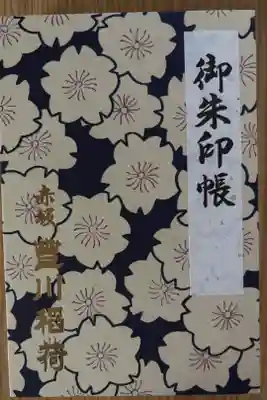 御朱印帳
赤坂 豊川稲荷